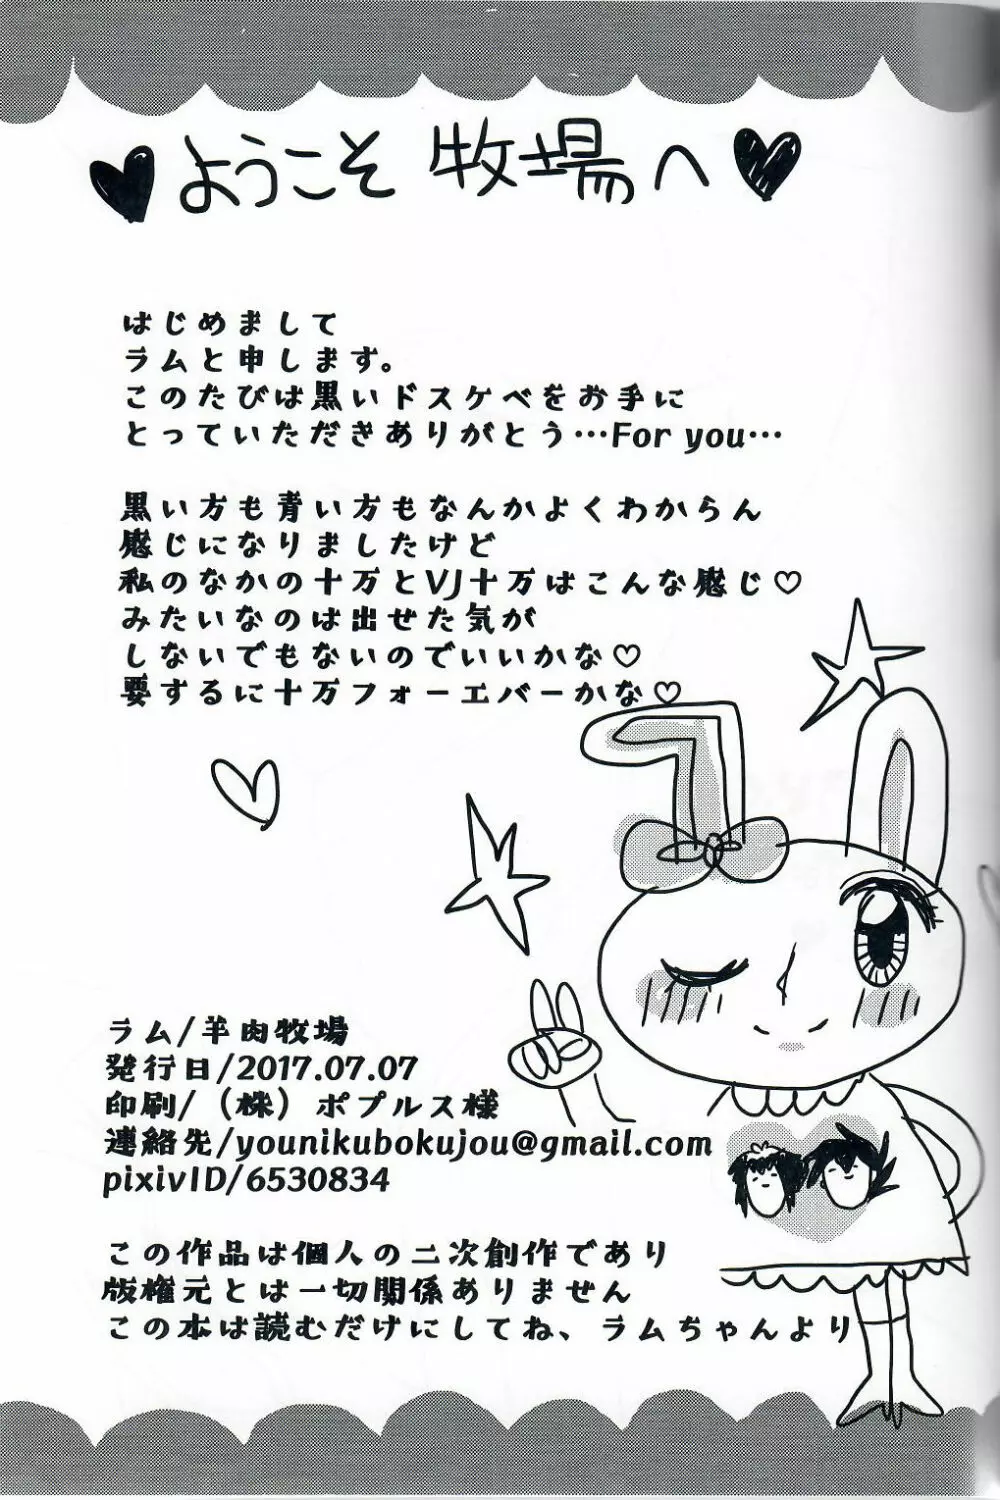 ようこそ 牧場へ
はじめまして
ラムと申します。
このたびは黒いドスケベをお手に
とっていただきありがとう…For you…
黒い方も青い方もなんかよくわからん
感じになりましたけど
私のなかの十万とVJ十万はこんな感じ♡
みたいなのは出せた気が
しないでもないのでいいかな♡
要するに十万フォーエバーかな♡
ラム/羊肉牧場
発行日/2017.07.07
印刷/（株）ポプルス様
連絡先/younikubokujou@gmail.com
pixivID/6530834
この作品は個人の二次創作であり
版権元とは一切関係ありません
この本は読むだけにしてね、ラムちゃんより